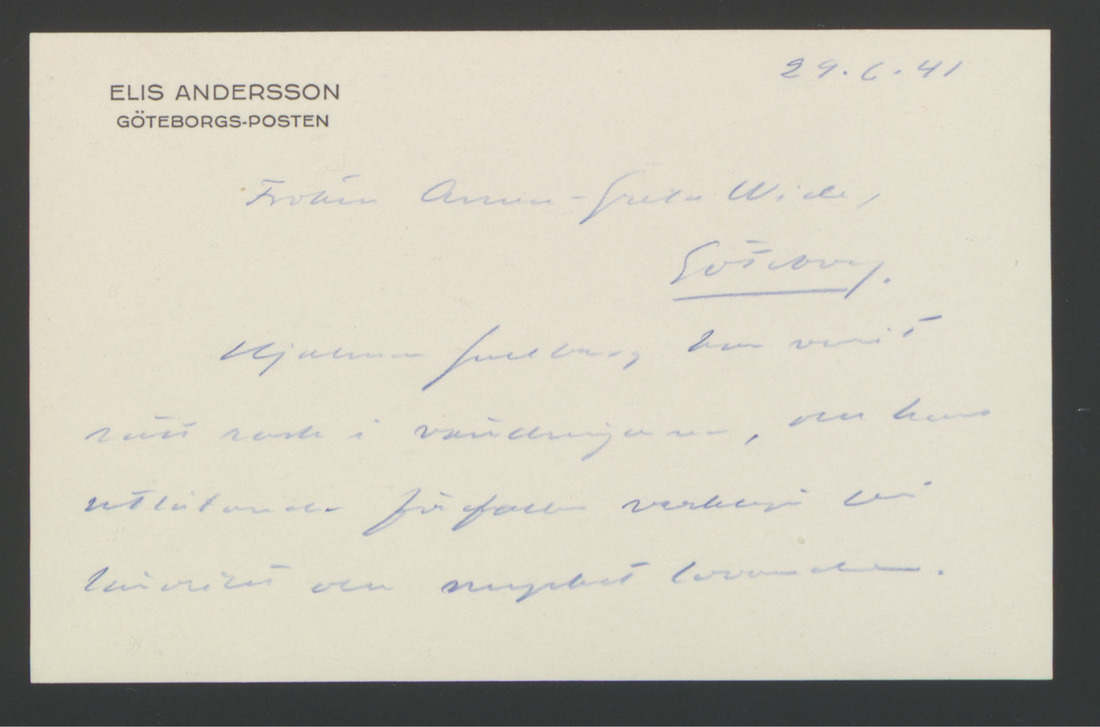 29.6.41
ELIS ANDERSSON
GÖTEBORGS-POSTEN
Fröken Anna-Greta Wide,
Göteborg.
Hjalmar Gullberg har varit
rätt rask i vändningarna, och hans
utlåtande förefaller verkligen
och mycket lovande.